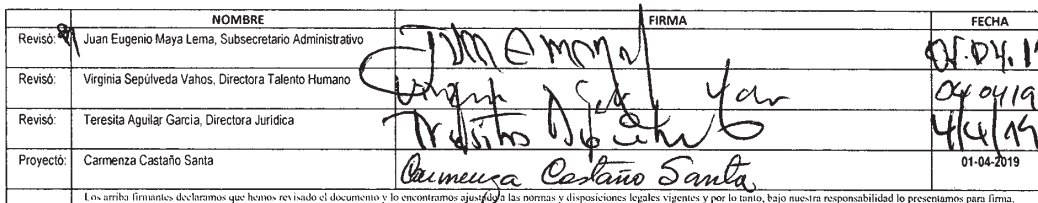 NOMBRE FIRMA FECHA
Revisó: Juan Eugenio Maya Lema, Subsecretario Administrativo
Revisó: Virginia Sepúlveda Vahos, Directora Talento Humano 04/04/19
Revisó: Teresita Aguilar García, Directora Jurídica 4/4/19
Proyectó: Carmenza Castaño Santa Carmenza Castaño Santa 01-04-2019
Los arriba firmantes declaramos que hemos revisado el documento y lo encontramos ajustado a las normas y disposiciones legales vigentes y por lo tanto, bajo nuestra responsabilidad lo presentamos para firma.